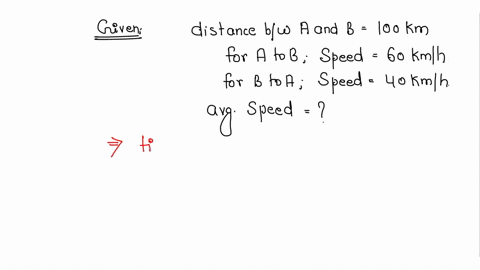 Given: distance b/w A and B = 100 Km
for A to B; Speed = 60 Km/h
for B to A; Speed = 40 Km/h
avg. Speed = ?
⇒ ti